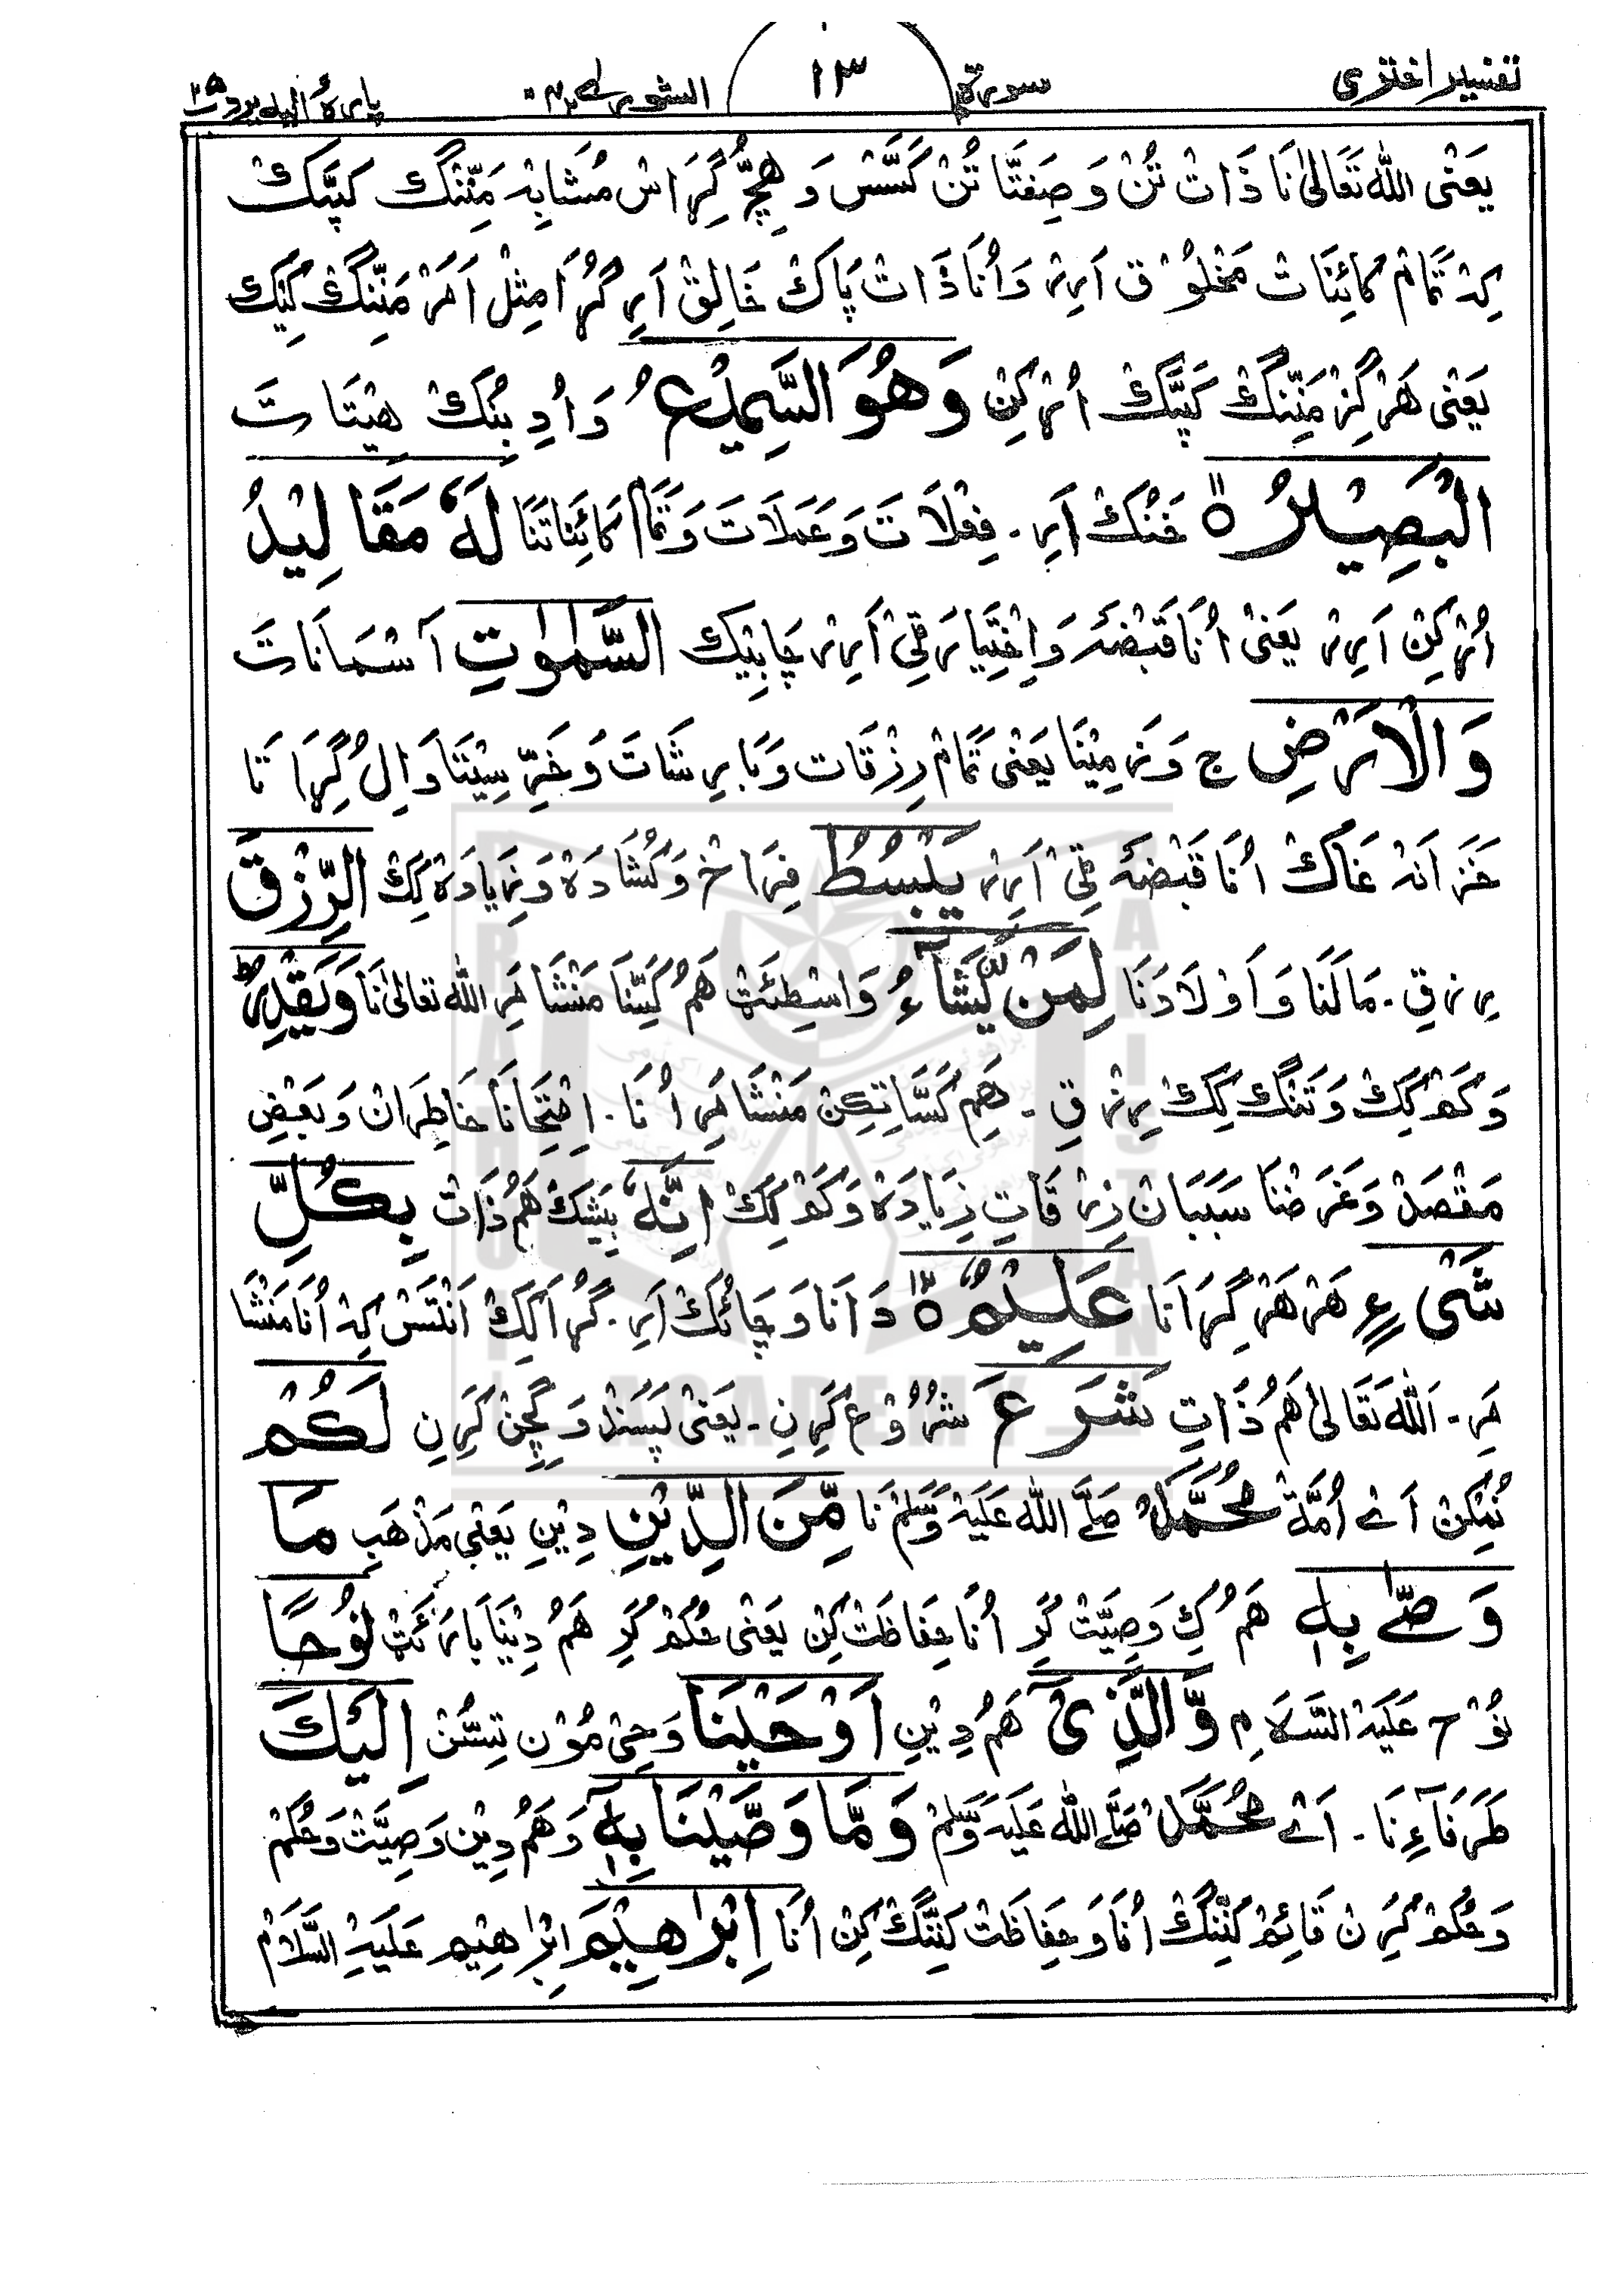 تفسیر اختری سورة ١٣ الشوریٰ پارہ الیہ یرد ٢٥
یَعْنٖی اللّٰہ تَعَالیٰ نَا ذَاتْ تُنْ وَ صِفَتَا تُنْ کَسَّسْ وَ ھِچّ گِرَاسْ مُشَابِہْ مَنِّنْگ کَپَّکْ
کِہْ تَمَامْ کائِنَاتْ مَخْلُوْق اَرِرْ وَ اُنَا ذَاتْ پَاکْ خَالِقْ اَرِ گُڑَا مِثْلْ اَمَرْ مَنِّنْگْ کَیْک
یَعْنٖی ھَرْ گِزْ مَنِّنْگْ کَپَّکْ اُرْکِنْ وَھُوَ السَّمِیْعُ وَ اُدِ بِنُکْ ھِیْتَاتَ
الْبَصِیْرُ ۝ خَنُکْ اَرِ ۔ فِعْلَاتَ وَ عَمَلَاتَ وَ تَمَامْ کائِنَاتَنَا لَہٗ مَقَالِیْدُ
اُرْکِنْ اَرِرْ یَعْنٖی اُنَا قَبْضَہ وَ اِخْتِیَار ٹِیْ اَرِرْ چَابِیْک السَّمٰوٰتِ آسْمَانَاتَ
وَالْاَرْضِ ج وَ زَمِیْنَا یَعْنٖی تَمَامْ رِزْقَات وَ بَارِشَاتَ وَ خَیْرِ سِیْتَا وَ اِلْ گِرَاتَا
خَزَانَہْ غَاکْ اُنَا قَبْضَہ ٹِیْ اَرِرْ یَبْسُطُ فِرَاخْ وَ کُشَادَہْ وَ زِیَادَہْ کِکْ الرِّزْقَ
رِزْقِ ۔ مَالَنَا وَ اَوْلَادَنَا لِمَنْ یَّشَآءُ وَاسْطِئَتْ ھَمُ کَسَّنَا مَنْشَا مَرِ اللّٰہ تعَالیٰ نَا وَیَقْدِرُ ط
وَ کَمْ کِکْ وَ تَنْگْ کِکْ رِزْقِ ۔ ھَمِ کَسَّاتِکِنْ مَنْشَا مَرِ اُنَا ۔ اِمْتِحَانَا خَاطِرَانْ وَ بَعْضِ
مَقْصَدْ وَ غَرَضْنَا سَبَبَانْ رِزْقَاتِ زِیَادَہْ وَ کَمْ کِکْ اِنَّہٗ بِیْشَکْ ھَمُ ذَاتْ بِکُلِّ
شَیْءٍ ھَرْ ھَرْ گِرَانَا عَلِیْمٌ ۝ ١٢ دَانَا وَ چَائُکْ اَرِ ۔ گُڑَا کِکْ اَنْتَسْ کِہْ اُنَا مَنْشَا
مَرِ ۔ اَللّٰہ تَعَالیٰ ھَمُ ذَاتِ شَرَعَ شُرُوْع کَرِنِ ۔ یَعْنٖی پَسَنْد وَ گِچِنْ کَرِنِ لَکُمْ
نُمْکِنْ اَےْ اُمَّۃْ مُحَمَّدْ صَلَّی اللّٰہ عَلَیْہِ وَسَلَّمْ نَا مِّنَ الدِّیْنِ دِیْنِ یَعْنِی مَذْھَبِ مَا
وَصّٰی بِہٖ ھَمُ کِ وَصِیَّتْ کَرِ اُنَا حِفَاظَتْ کِنْ یَعْنٖی حُکُمْ کَرِ ھَمُ دِیْنَا بَارَئَتْ نُوْحًا
نُوْح عَلَیْہِ السَّلَامِ وَّالَّذِیْٓ ھَمُ دِیْنِ اَوْحَیْنَا وَحِیْ مُوْن تِسُّنْ اِلَیْکَ
طَرَفَاءِ نَا ۔ اَےْ مُحَمَّدْ صَلَّی اللّٰہ عَلَیْہِ وَسَلَّمْ وَمَا وَصَّیْنَا بِہٖٓ وَ ھَمُ دِیْنِ وَصِیَّتْ وَ حُکُمْ
وَ حُکُمْ کَرِنْ قَائِمْ کَنِّنْگْ اُنَا وَ حِفَاظَتْ کَنِّنْگْ کِنْ اُنَا اِبْرٰھِیْمَ اِبْرَاھِیْم عَلَیْہِ السَّلَامْ